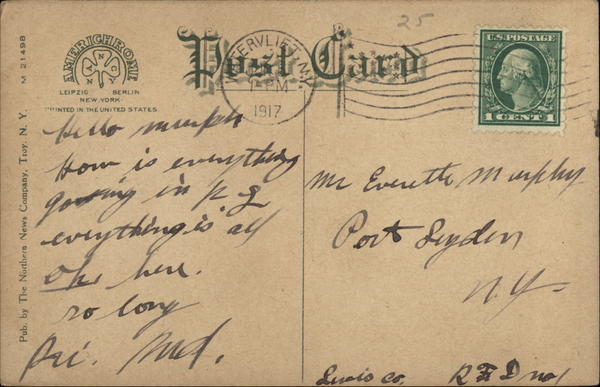 AMERICHROME
A N C Y
LEIPZIG BERLIN
NEW YORK
PRINTED IN THE UNITED STATES
Post Card
25
WATERVLIET N.Y.
PM
1917
U.S. POSTAGE
1 CENT 1
M 21498
Pub. by The Northern News Company, Troy, N. Y.
Hello Murph
How is everything
going in P L
everything is all
Ok. here.
so long
Pri. Med.
Mr Everette Murphy
Port Leyden
N.Y.
Lewis Co. R F D no 1